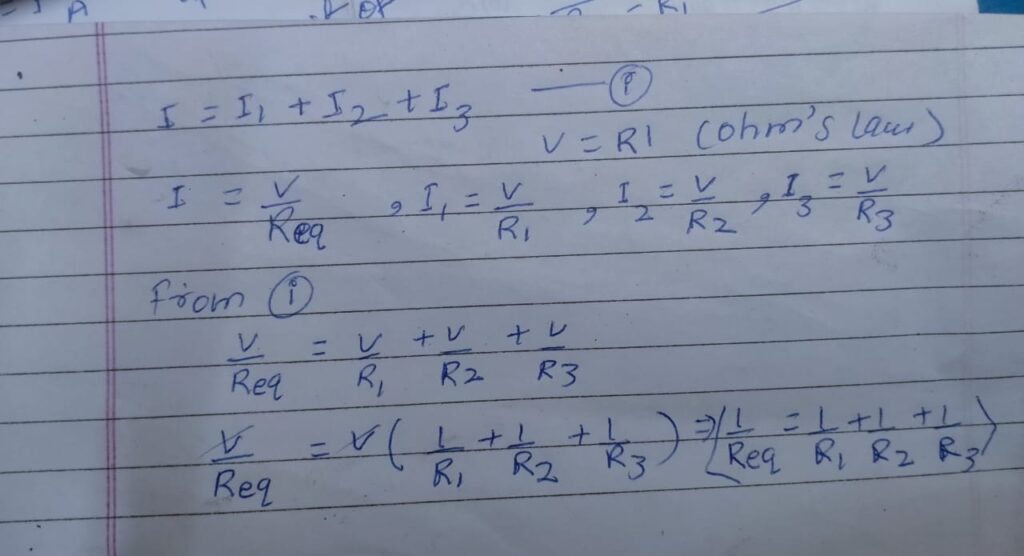 I = I₁ + I₂ + I₃ —— (i)
V = RI (Ohm's law)
I = V/Req , I₁ = V/R₁ , I₂ = V/R₂ , I₃ = V/R₃
From (i)
V/Req = V/R₁ + V/R₂ + V/R₃
V/Req = V ( 1/R₁ + 1/R₂ + 1/R₃ ) ⇒ ( 1/Req = 1/R₁ + 1/R₂ + 1/R₃ )